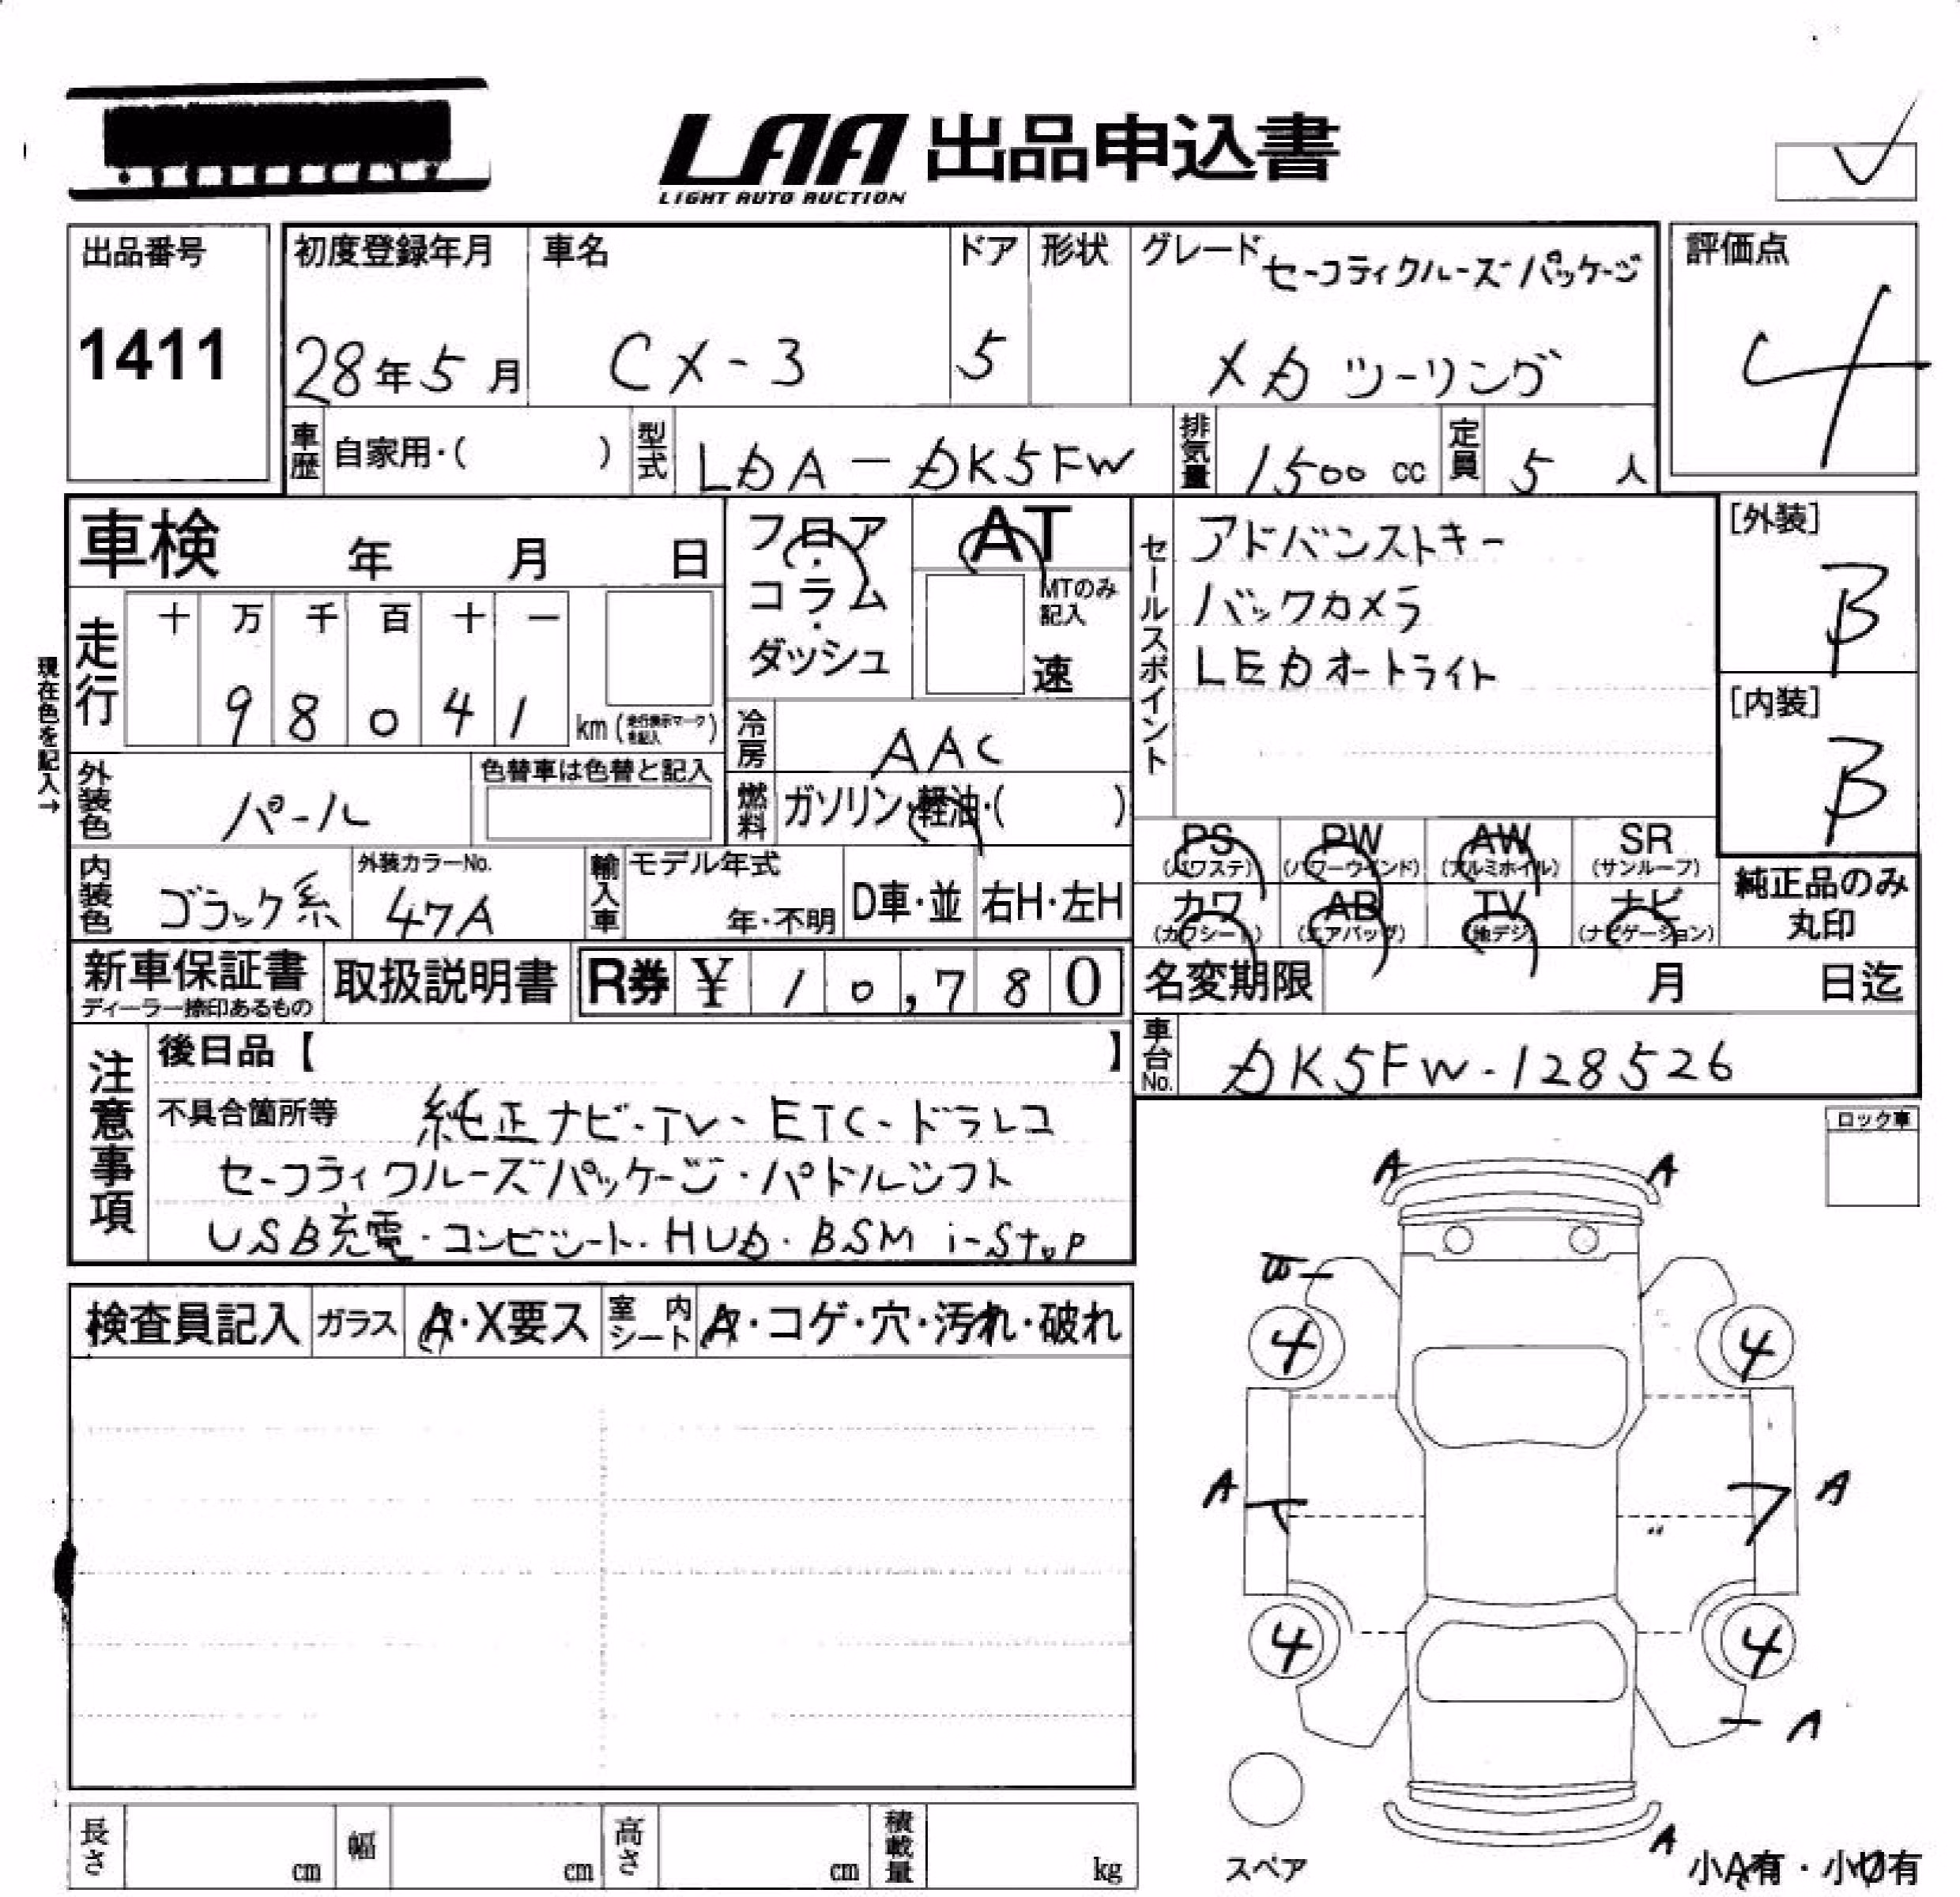 LAA 出品申込書
LIGHT AUTO AUCTION
出品番号
1411
初度登録年月
28年 5月
車名
CX-3
ドア
5
形状
グレード セーフティクルーズパッケージ
XD ツーリング
評価点
4
車歴 自家用・( )
型式 LDA-DK5FW
排気量 1500 cc
定員 5 人
車検 年 月 日
フロア・
コラム・
ダッシュ
AT
MTのみ記入
速
セールスポイント
アドバンストキー
バックカメラ
LEDオートライト
[外装]
B
[内装]
B
現在色を記入→
走行
十 万 千 百 十 一
9 8 0 4 1 km (走行表示マークを記入)
冷房 AAC
外装色 パール
色替車は色替と記入
燃料 ガソリン・軽油・( )
内装色 ブラック系
外装カラーNo.
47A
輸入車
モデル年式
年・不明
D車・並
右H・左H
PS (パワステ)
PW (パワーウインド)
AW (アルミホイル)
SR (サンルーフ)
カワ (カワシート)
AB (エアバッグ)
TV (地デジ)
ナビ (ナビゲーション)
純正品のみ
丸印
新車保証書
ディーラー捺印あるもの
取扱説明書
R券 ¥ 10,780
名変期限 月 日迄
車台No. DK5FW-128526
注意事項
後日品【 】
不具合箇所等 純正ナビ・TV・ETC・ドラレコ
セーフティクルーズパッケージ・パドルシフト
USB充電・コンビシート・HUD・BSM i-stop
ロック車
検査員記入
ガラス A・X要ス
室内シート A・コゲ・穴・汚れ・破れ
A A
4 4
A A
4 4
A
A
スペア
小A有・小U有
長さ cm
幅 cm
高さ cm
積載量 kg